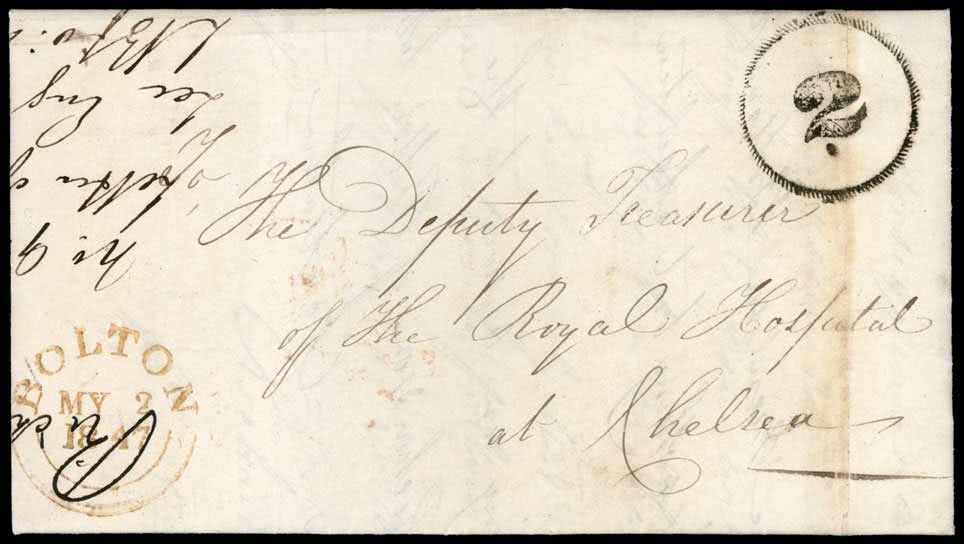 2
The Deputy Treasurer
of The Royal Hospital
at Chelsea
BOLTON
MY 2
1847